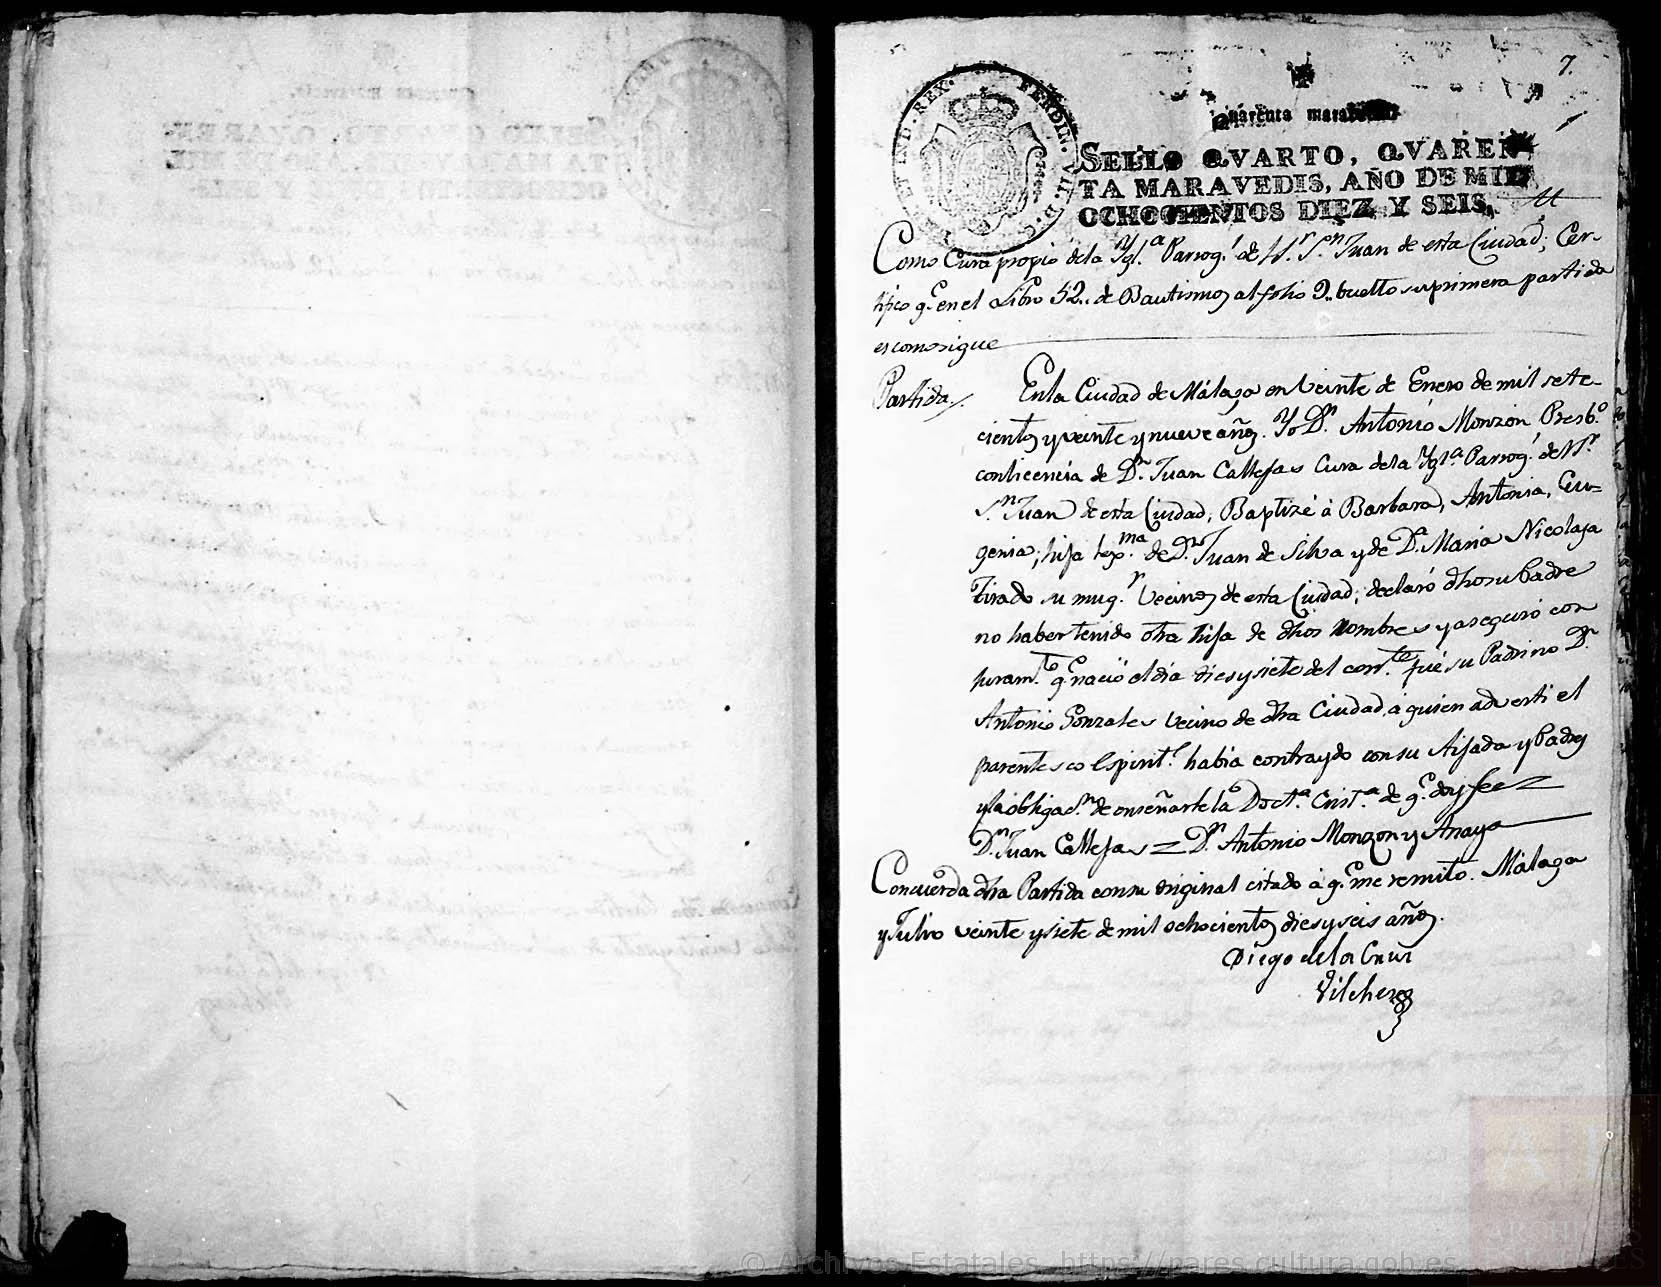 7.
FERDIN. VII. D. G. ET IND. REX.
Quarenta maravedis
SELLO QVARTO, QVAREN
TA MARAVEDIS, AÑO DE MIL
OCHOCIENTOS DIEZ Y SEIS,
Como Cura propio dela Ygl.ª Parroq.l de N.r S.n Juan de esta Ciudad; Cer-
tifico q.e en el Libro 52.. de Bautismos al folio 2.. buelto su primera partida
es como sigue
Partida./. En la Ciudad de Málaga en Veinte de Enero de mil sete-
cientos y veinte y nueve años. Yo D.n Antonio Monzon Presb.o
con licencia de D.n Juan Callejas Cura dela Ygl.ª Parroq.l de N.r
S.n Juan de esta Ciudad; Baptizé à Barbara, Antonia, Eu=
genia; hija lex.ma de D.n Juan de Silva y de D.ª Maria Nicolasa
Tirado su mug.r Vecinos de esta Ciudad; declaró dho su Padre
no haber tenido otra hija de dhos Nombres y aseguró con
juram.to q.e nació el dia dies y siete del corr.te fué su Padrino D.n
Antonio Gonzales Vecino de dha Ciudad, à quien advertí el
parentesco Espirit.l había contraydo con su Aijada y Padres
y la obligac.n de enseñarle la Doct.ª Crist.ª de q.e doy fee =
D.n Juan Callejas = D.n Antonio Monzon y Anaya
Concuerda dha Partida con su original citado à q.e me remito. Málaga
y Julio veinte y siete de mil ochocientos dies y seis años.
Diego de la Cruz
Vilches
© Archivos Estatales, https://pares.cultura.gob.es